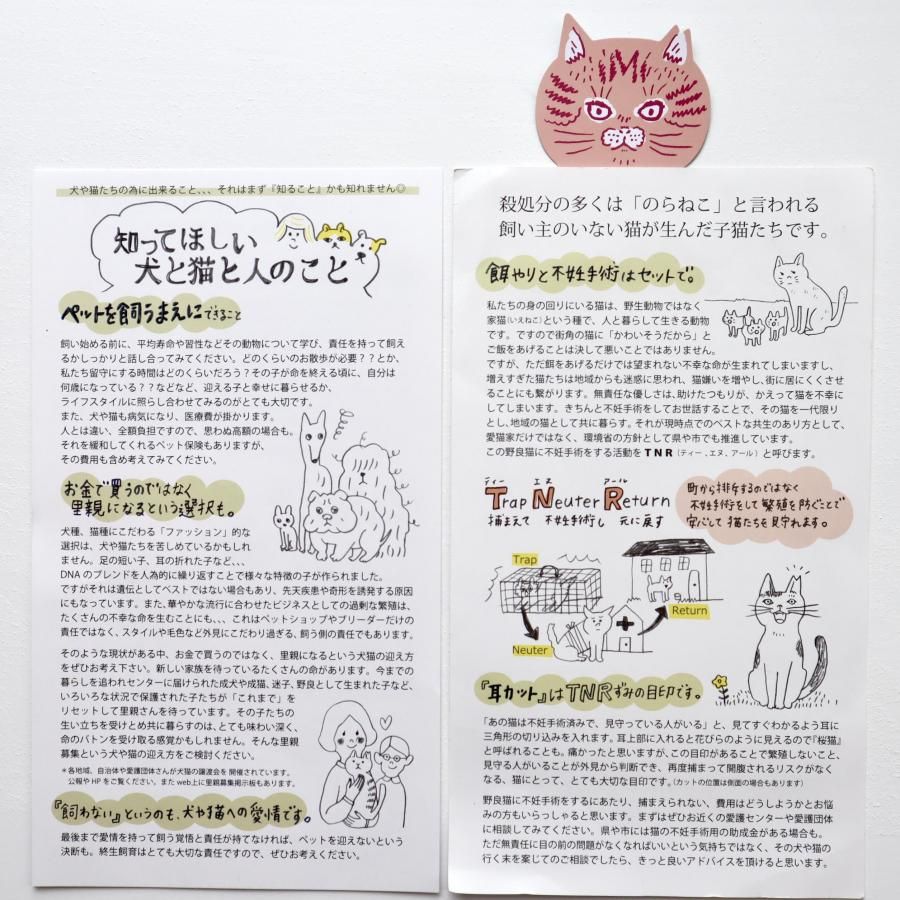 犬や猫たちの為に出来ること、、、それはまず『知ること』かも知れません◎
知ってほしい
犬と猫と人のこと
ペットを飼うまえにできること
飼い始める前に、平均寿命や習性などその動物について学び、責任を持って飼え
るかしっかりと話し合ってみてください。どのくらいのお散歩が必要??とか、
私たち留守にする時間はどのくらいだろう?その子が命を終える頃に、自分は
何歳になっている??などなど、迎える子と幸せに暮らせるか、
ライフスタイルに照らし合わせてみるのがとても大切です。
また、犬や猫も病気になり、医療費が掛かります。
人とは違い、全額負担ですので、思わぬ高額の場合も。
それを緩和してくれるペット保険もありますが、
その費用も含め考えてみてください。
お金で買うのではなく
里親になるという選択も。
犬種、猫種にこだわる「ファッション」的な
選択は、犬や猫たちを苦しめているかもしれ
ません。足の短い子、耳の折れた子など、、、
DNAのブレンドを人為的に繰り返すことで様々な特徴の子が作られました。
ですがそれは遺伝としてベストではない場合もあり、先天疾患や奇形を誘発する原因
にもなっています。また、華やかな流行に合わせたビジネスとしての過剰な繁殖は、
たくさんの不幸な命を生むことにも、、、これはペットショップやブリーダーだけの
責任ではなく、スタイルや毛色など外見にこだわり過ぎる、飼う側の責任でもあります。
そのような現状がある中、お金で買うのではなく、里親になるという犬猫の迎え方
をぜひお考え下さい。新しい家族を待っているたくさんの命があります。今までの
暮らしを追われセンターに届けられた成犬や成猫、迷子、野良として生まれた子など、
いろいろな状況で保護された子たちが「これまで」を
リセットして里親さんを待っています。その子たちの
生い立ちを受けとめ共に暮らすのは、とても味わい深く、
命のバトンを受け取る感覚かもしれません。そんな里親
募集という犬や猫の迎え方をご検討ください。
*各地域、自治体や愛護団体さんが犬猫の譲渡会を開催されています。
公報やHPをご覧ください。またweb上に里親募集掲示板もあります。
『飼わない』というのも、犬や猫への愛情です。
最後まで愛情を持って飼う覚悟と責任が持てなければ、ペットを迎えないという
決断も。終生飼育はとても大切な責任ですので、ぜひお考えください。
殺処分の多くは「のらねこ」と言われる
飼い主のいない猫が生んだ子猫たちです。
餌やりと不妊手術はセットで。
私たちの身の回りにいる猫は、野生動物ではなく
家猫(いえねこ)という種で、人と暮らして生きる動物
です。ですので街角の猫に「かわいそうだから」と
ご飯をあげることは決して悪いことではありません。
ですが、ただ餌をあげるだけでは望まれない不幸な命が生まれてしまいますし、
増えすぎた猫たちは地域からも迷惑に思われ、猫嫌いを増やし、街に居にくくさせ
ることにも繋がります。無責任な優しさは、助けたつもりが、かえって猫を不幸に
してしまいます。きちんと不妊手術をしてお世話することで、その猫を一代限り
とし、地域の猫として共に暮らす。それが現時点でのベストな共生のあり方として、
愛猫家だけではなく、環境省の方針として県や市でも推進しています。
この野良猫に不妊手術をする活動をTNR(ティー、エヌ、アール)と呼びます。
ティー エヌ アール
Trap Neuter Return
捕まえて 不妊手術し 元に戻す
町から排除するのではなく
不妊手術をして繁殖を防ぐことで
安心して猫たちを見守れます。
Trap
Return
Neuter
『耳カット』はTNRずみの目印です。
「あの猫は不妊手術済みで、見守っている人がいる」と、見てすぐわかるよう耳に
三角形の切り込みを入れます。耳上部に入れると花びらのように見えるので『桜猫』
と呼ばれることも。痛かったと思いますが、この目印があることで繁殖しないこと、
見守る人がいることが外見から判断でき、再度捕まって開腹されるリスクがなく
なる、猫にとって、とても大切な目印です。(カットの位置は側面の場合もあります)
野良猫に不妊手術をするにあたり、捕まえられない、費用はどうしようかとお悩
みの方もいらっしゃると思います。まずはぜひお近くの愛護センターや愛護団体
に相談してみてください。県や市には猫の不妊手術用の助成金がある場合も。
ただ無責任に目の前の問題がなくなればいいという気持ちではなく、その犬や猫の
行く末を案じてのご相談でしたら、きっと良いアドバイスを頂けると思います。